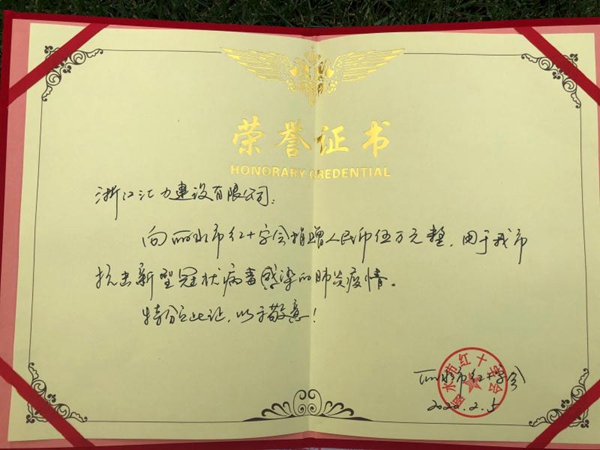 荣誉证书
HONORARY CREDENTIAL
浙江汇力建设有限公司:
向丽水市红十字会捐赠人民币伍万元整,用于我市
抗击新型冠状病毒感染的肺炎疫情。
特发此证,以示敬意!
丽水市红十字会
丽水市红十字会
2020.2.5